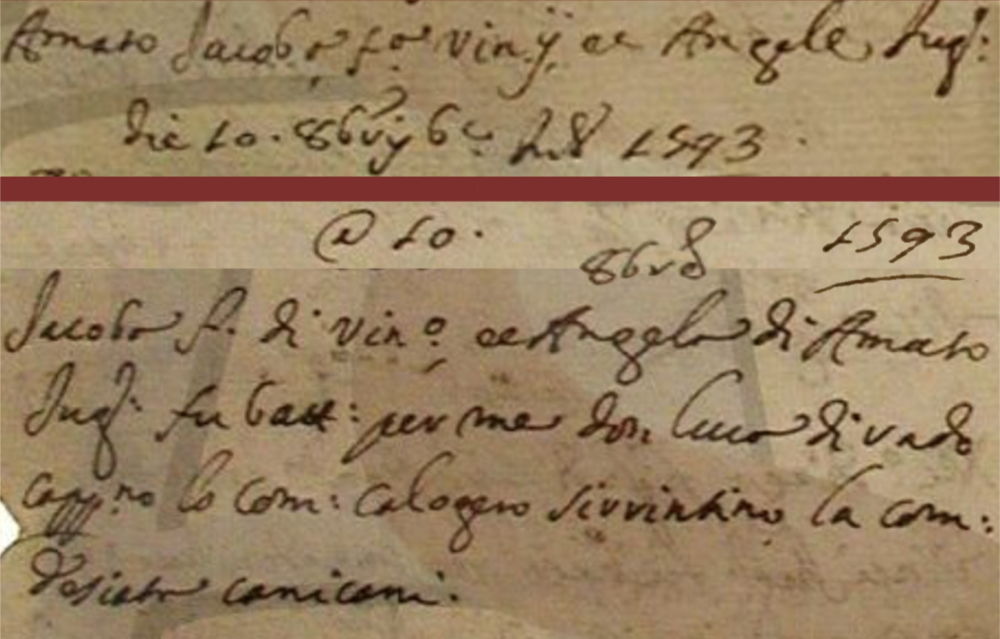 Amato Jacobo f.o vin.ij et Angele Jug:
die 10. 86 6e Jnd 1593.
@ 10. 1593
Jacobo f. di vin.o et Angela di Amato
Jug: fu batt: per me don luca di vado
capp.no lo com: calogero sivvintino la com:
Desiata canicani.